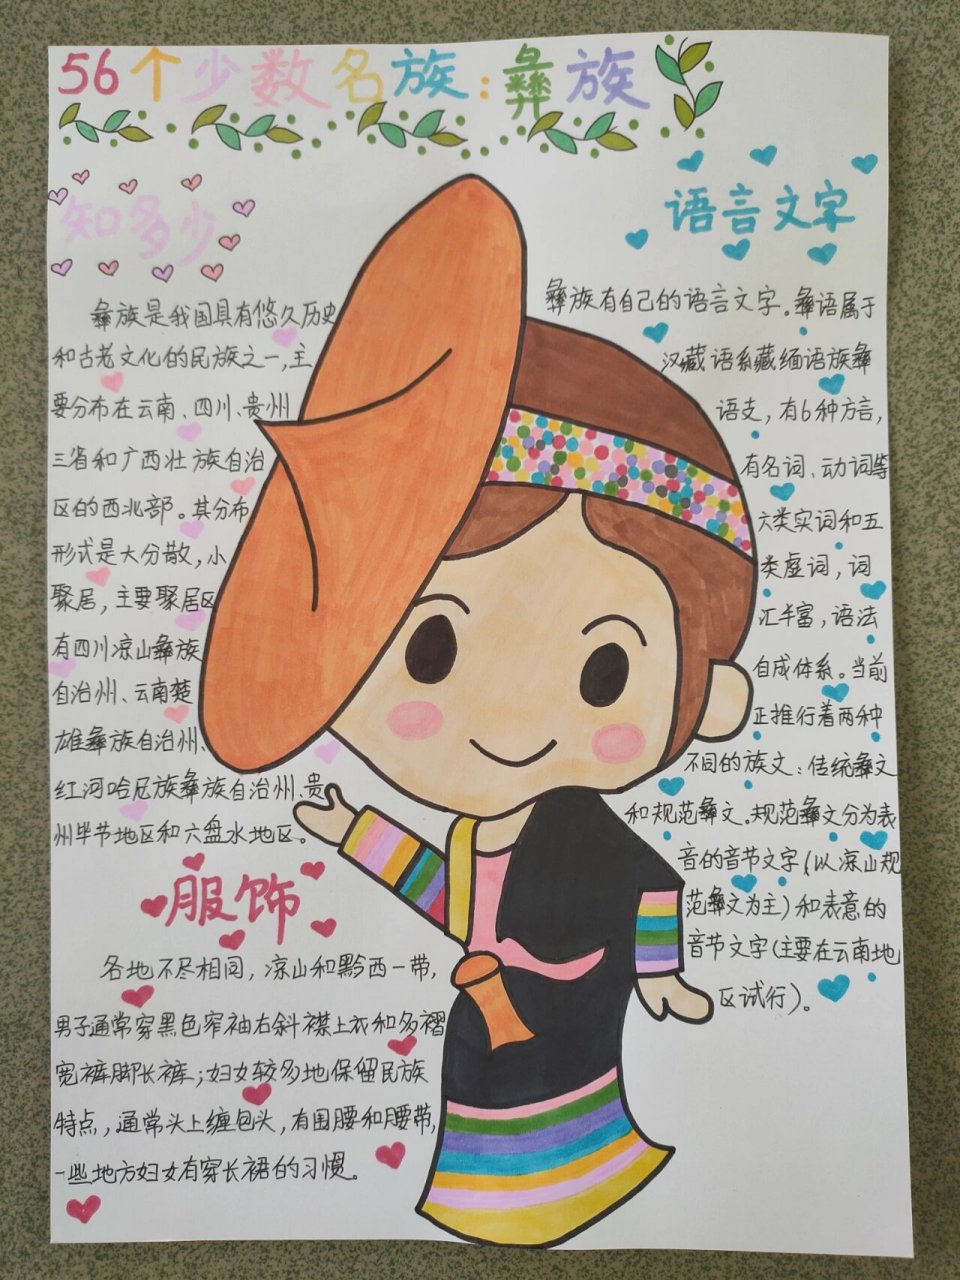 56个少数名族：彝族
知多少
彝族是我国具有悠久历史
和古老文化的民族之一,主
要分布在云南、四川、贵州
三省和广西壮族自治
区的西北部。其分布
形式是大分散,小
聚居,主要聚居区
有四川凉山彝族
自治州、云南楚
雄彝族自治州、
红河哈尼族彝族自治州、贵
州毕节地区和六盘水地区。
服饰
各地不尽相同,凉山和黔西一带,
男子通常穿黑色窄袖右斜襟上衣和多褶
宽裤脚长裤;妇女较多地保留民族
特点,通常头上缠包头,有围腰和腰带,
一些地方妇女有穿长裙的习惯。
语言文字
彝族有自己的语言文字。彝语属于
汉藏语系藏缅语族彝
语支,有6种方言,
有名词、动词等
六类实词和五
类虚词,词
汇丰富,语法
自成体系。当前
正推行着两种
不同的族文:传统彝文
和规范彝文。规范彝文分为表
音的音节文字(以凉山规
范彝文为主)和表意的
音节文字(主要在云南地
区试行)。